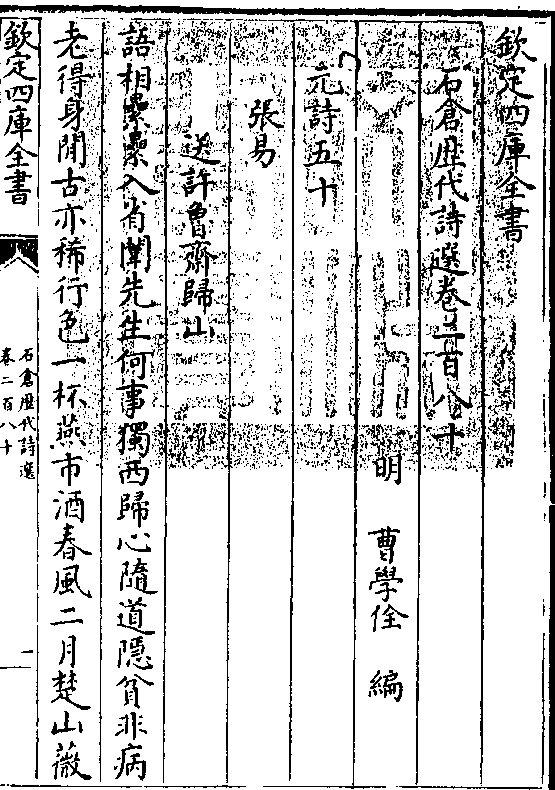 欽定四庫全書
石倉歷代詩選卷二百八十
明 曹學佺 編
元詩五十
張易
送許魯齋歸山
語相纍纍入省闈先生何事獨西歸心隨道隱貧非病
老得身閒古亦稀行色一杯燕市酒春風二月楚山薇
欽定四庫全書
石倉歷代詩選
卷二百八十
一